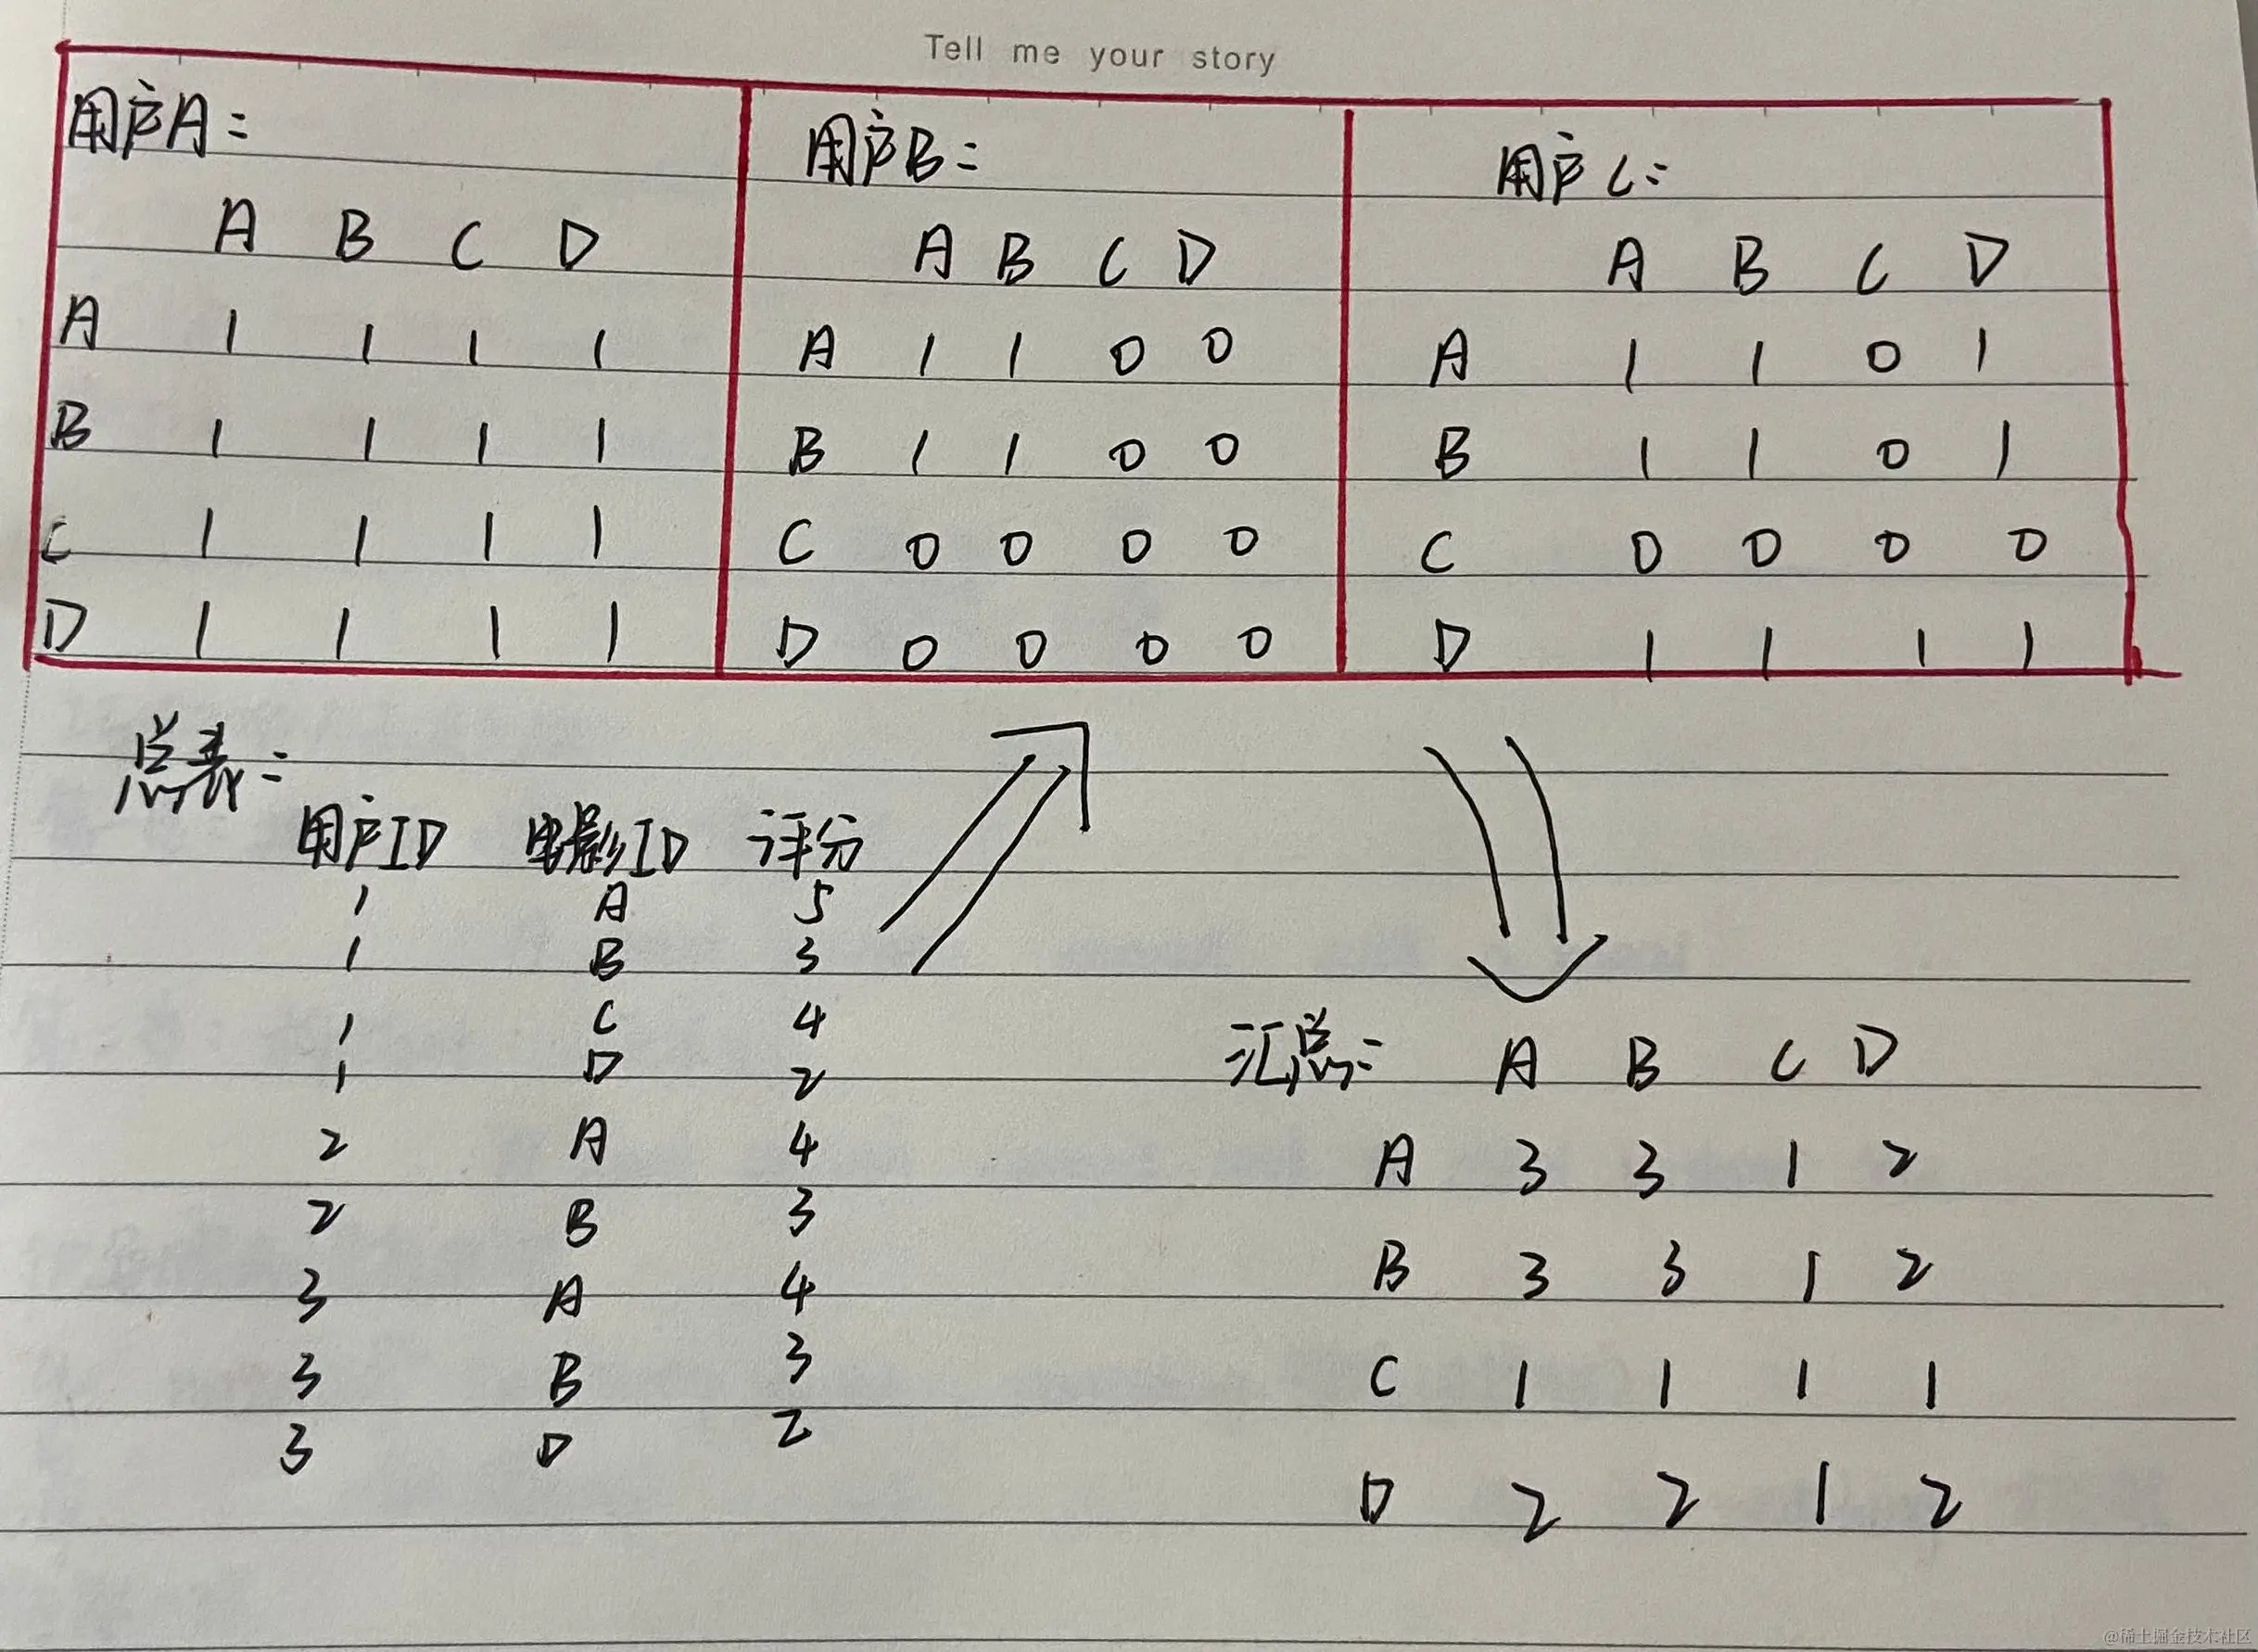 Tell me your story
用户A:
A B C D
A 1 1 1 1
B 1 1 1 1
C 1 1 1 1
D 1 1 1 1
用户B:
A B C D
A 1 1 0 0
B 1 1 0 0
C 0 0 0 0
D 0 0 0 0
用户C:
A B C D
A 1 1 0 1
B 1 1 0 1
C 0 0 0 0
D 1 1 1 1
总表:
用户ID 电影ID 评分
1 A 5
1 B 3
1 C 4
1 D 2
2 A 4
2 B 3
3 A 4
3 B 3
3 D 2
汇总: A B C D
A 3 3 1 2
B 3 3 1 2
C 1 1 1 1
D 2 2 1 2
@稀土掘金技术社区